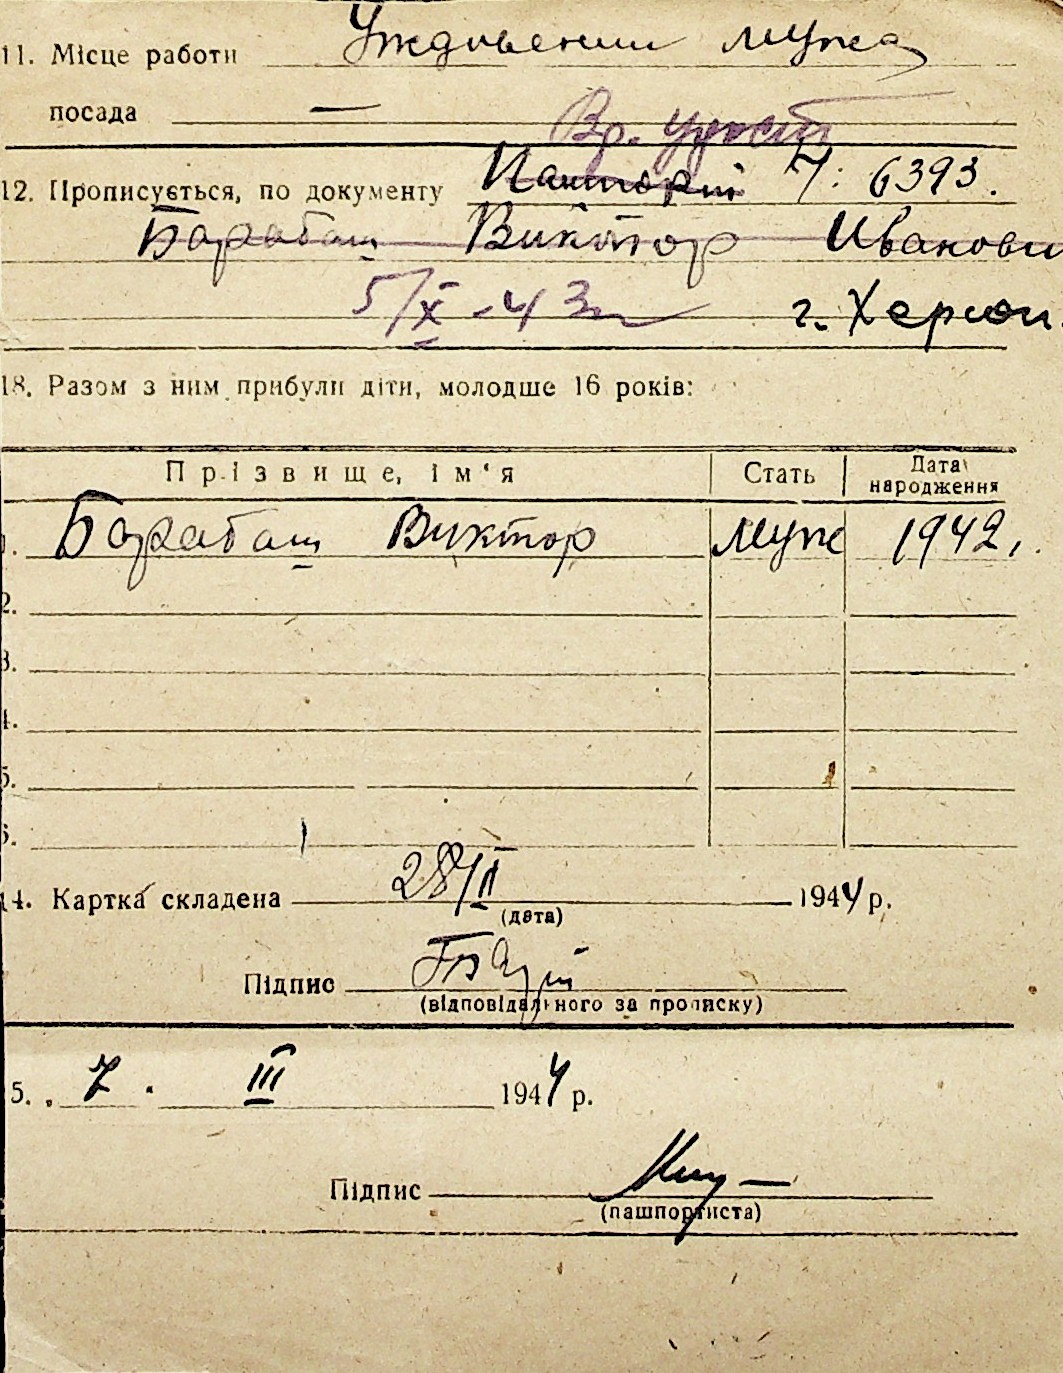 11. Місце работи Иждивении мужа
посада —
Вр. удост
12. Прописується, по документу Паспорт Ч: 6393.
Барабаш Виктор Иванови
5/X-43 г. Херсон.
18. Разом з ним прибули діти, молодше 16 років:
Прізвище, ім'я Стать Дата народження
1. Барабаш Виктор муж 1942.
2.
3.
4.
5.
6.
14. Картка складена 28/II 1944 р.
(дата)
Підпис
(відповідального за прописку)
5. 7. III 1944 р.
Підпис
(пашпортиста)